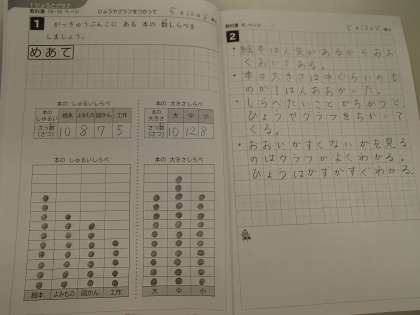 ひょうとグラフ
教科書 15~16 ページ
ひょうやグラフをつかって
1
がっきゅうぶんこに ある 本の 数しらべを
しましょう。
めあて
本の しゅるいしらべ
本の しゅるい 絵本 よみもの 図かん 工作
さつ数(さつ) 10 8 7 5
本の 大きさしらべ
本の 大きさ 大 中 小
さつ数(さつ) 10 12 8
本の しゅるいしらべ
絵本 よみもの 図かん 工作
本の 大きさしらべ
大 中 小
教科書 16 ページ
2
・絵本は人気があるからおお
くおいてある。
・本の大きさは中ぐらいのも
のが1ばんおおかった。
・しらべたいことがちがうと、
ひょうやグラフをちがって
くる。
・おおいかすくないかを見る
のはグラフがよくわかる。
ひょうはかずがすぐわかる。